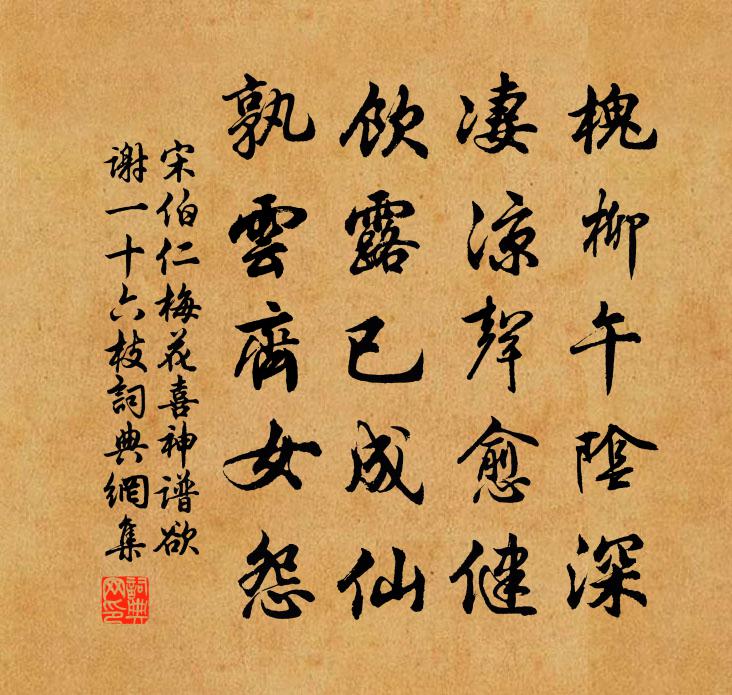 槐柳午陰深
淒涼聲愈健
飲露已成仙
孰雲齊女怨
宋伯仁梅花喜神譜欲
謝一十六枝詞典網集
詞典網印